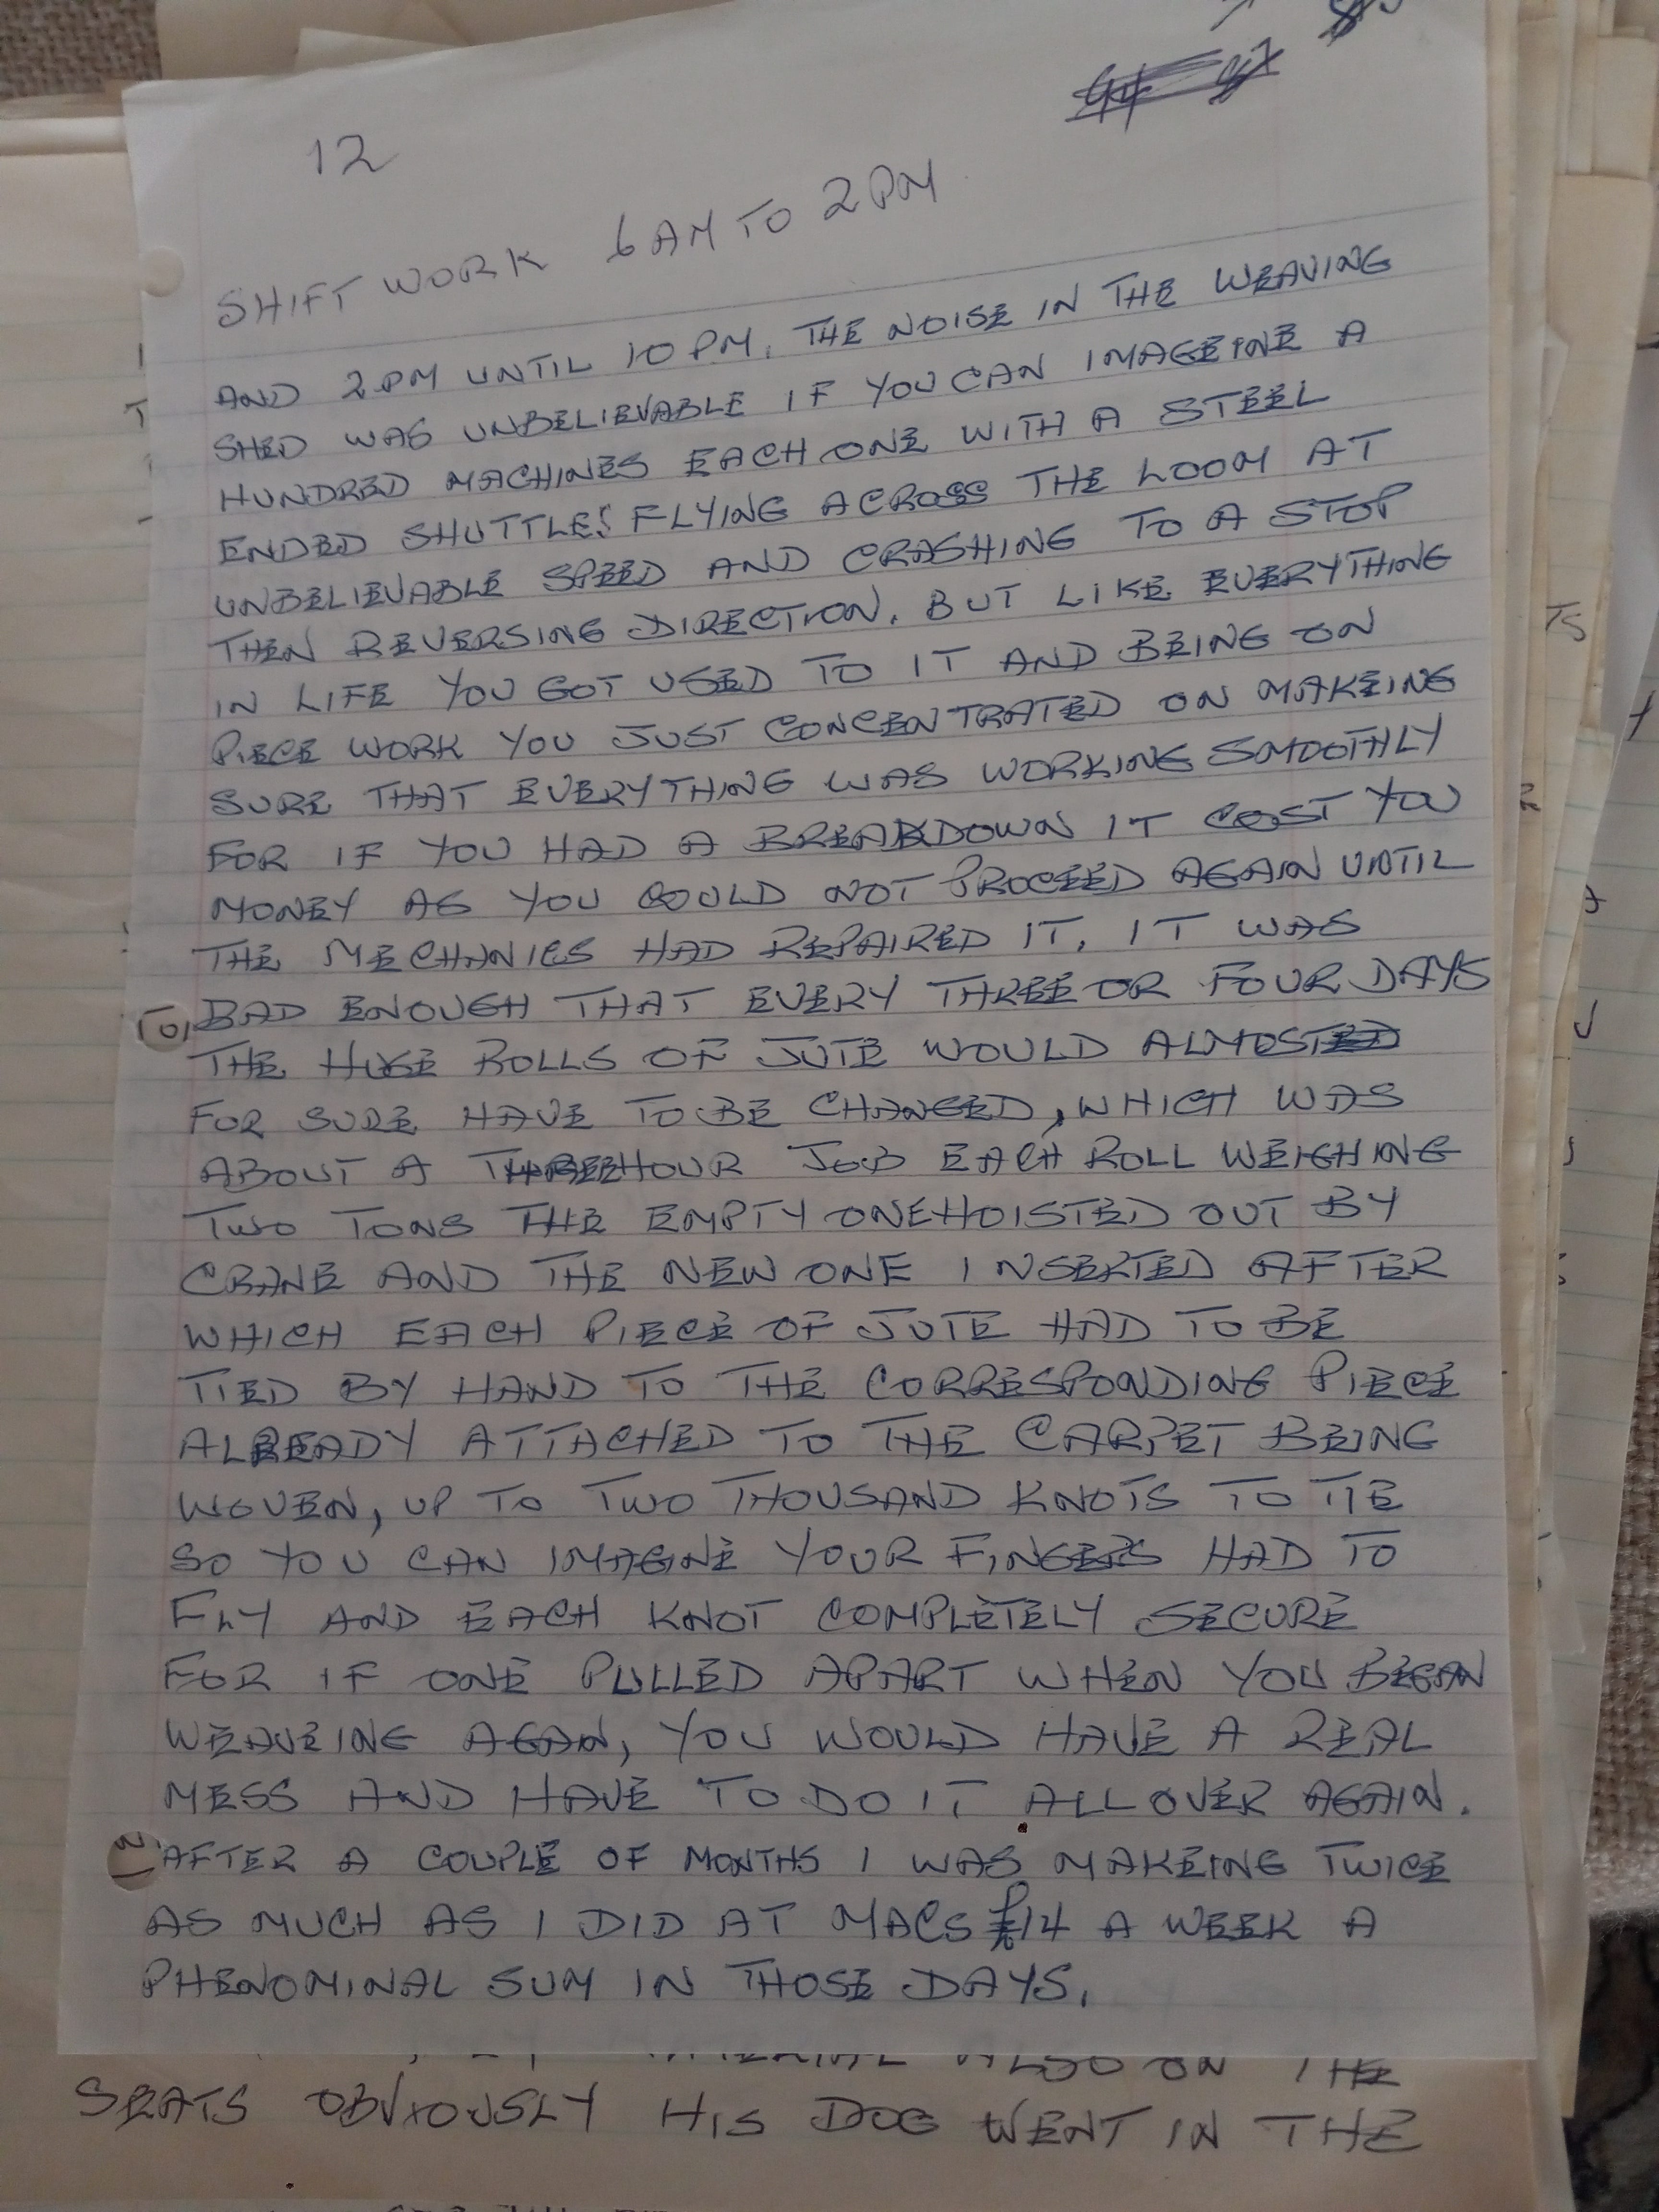 12
SHIFT WORK 6AM TO 2PM
AND 2PM UNTIL 10PM. THE NOISE IN THE WEAVING
SHED WAS UNBELIEVABLE IF YOU CAN IMAGEINE A
HUNDRED MACHINES EACH ONE WITH A STEEL
ENDED SHUTTLE! FLYING ACROSS THE LOOM AT
UNBELIEVABLE SPEED AND CRASHING TO A STOP
THEN REVERSING DIRECTION. BUT LIKE EVERYTHING
IN LIFE YOU GOT USED TO IT AND BEING ON
PIECE WORK YOU JUST CONCENTRATED ON MAKEING
SURE THAT EVERYTHING WAS WORKING SMOOTHLY
FOR IF YOU HAD A BREAKDOWN IT COST YOU
MONEY AS YOU COULD NOT PROCEED AGAIN UNTIL
THE MECHANICS HAD REPAIRED IT. IT WAS
BAD ENOUGH THAT EVERY THREE OR FOUR DAYS
THE HUGE ROLLS OF JUTE WOULD ALMOST
FOR SURE HAVE TO BE CHANGED, WHICH WAS
ABOUT A THREE HOUR JOB EACH ROLL WEIGHING
TWO TONS THE EMPTY ONE HOISTED OUT BY
CRANE AND THE NEW ONE INSERTED AFTER
WHICH EACH PIECE OF JUTE HAD TO BE
TIED BY HAND TO THE CORRESPONDING PIECE
ALREADY ATTACHED TO THE CARPET BEING
WOVEN, UP TO TWO THOUSAND KNOTS TO TIE
SO YOU CAN IMAGINE YOUR FINGERS HAD TO
FLY AND EACH KNOT COMPLETELY SECURE
FOR IF ONE PULLED APART WHEN YOU BEGAN
WEAVEING AGAIN, YOU WOULD HAVE A REAL
MESS AND HAVE TO DO IT ALL OVER AGAIN.
AFTER A COUPLE OF MONTHS I WAS MAKEING TWICE
AS MUCH AS I DID AT MACS £14 A WEEK A
PHENOMINAL SUM IN THOSE DAYS.
MATERIAL ALSO ON THE
SEATS OBVIOUSLY HIS DOG WENT IN THE